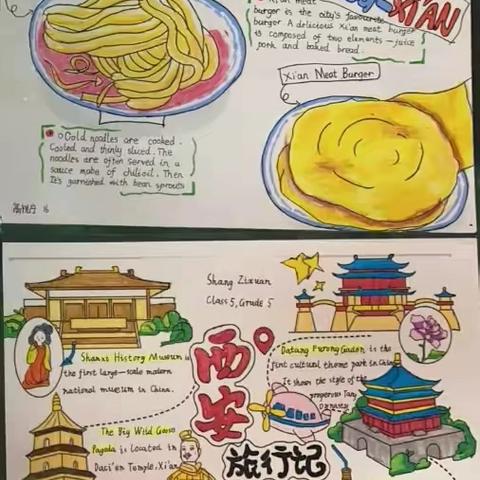 XI'AN
Xi'an meat
burger is the city's favourite
burger. A delicious Xi'an meat burger
is composed of two elements—juice
pork and baked bread.
Xi'an Meat Burger
Cold noodles are cooked.
Cooled and thinly sliced. The
noodles are often served in a
sauce make of chilioil. Then
It's garnished with bean sprouts
16
Shang Zixuan
Class 5, Grade 5
Shanxi History Museum is
the first large-scale modern
national museum in China.
西
安
旅行记
Datang Furong Garden is the
first cultural theme park in China
It shows the style of the
prosperous Tang
Dynasty
The Big Wild Goose
Pagoda is located in
Daci'en Temple, Xi'an